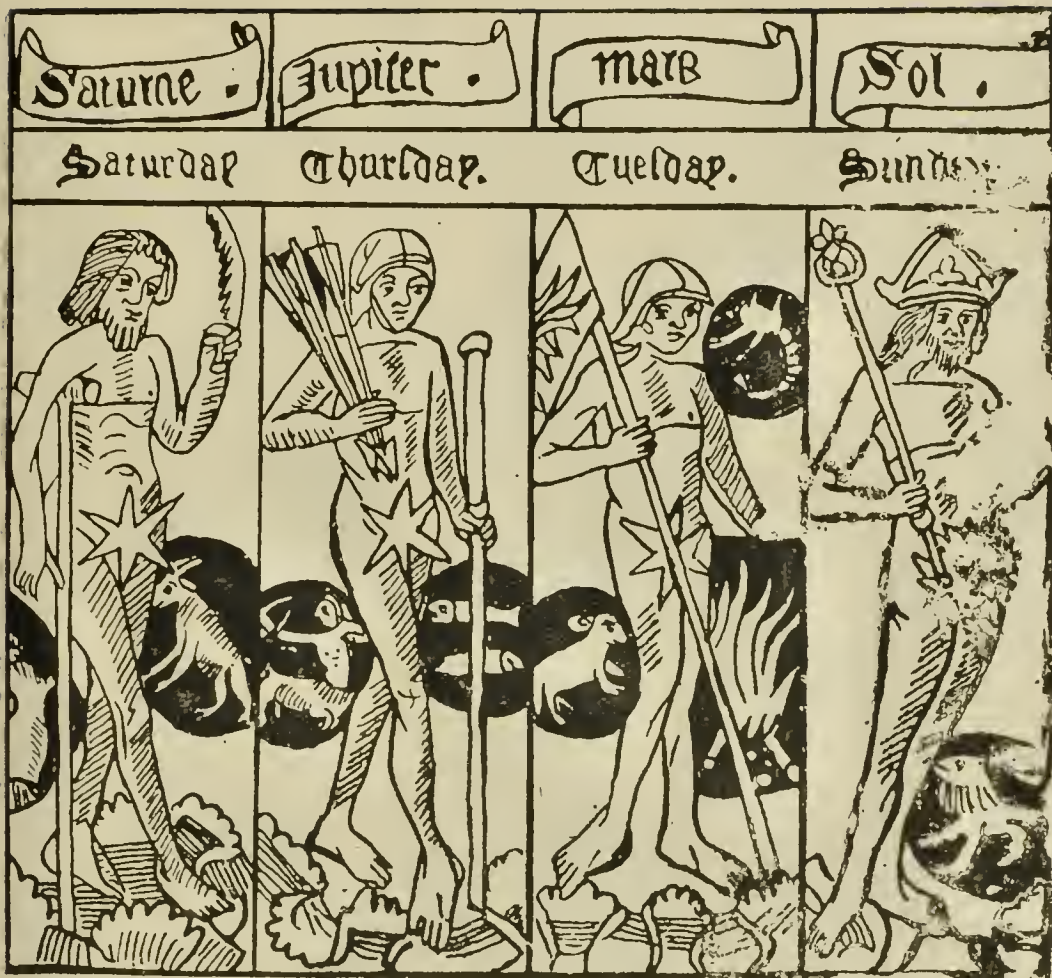 Saturne . Jupiter . mars Sol .
Saturday Thurſday. Tueſday. Sunday